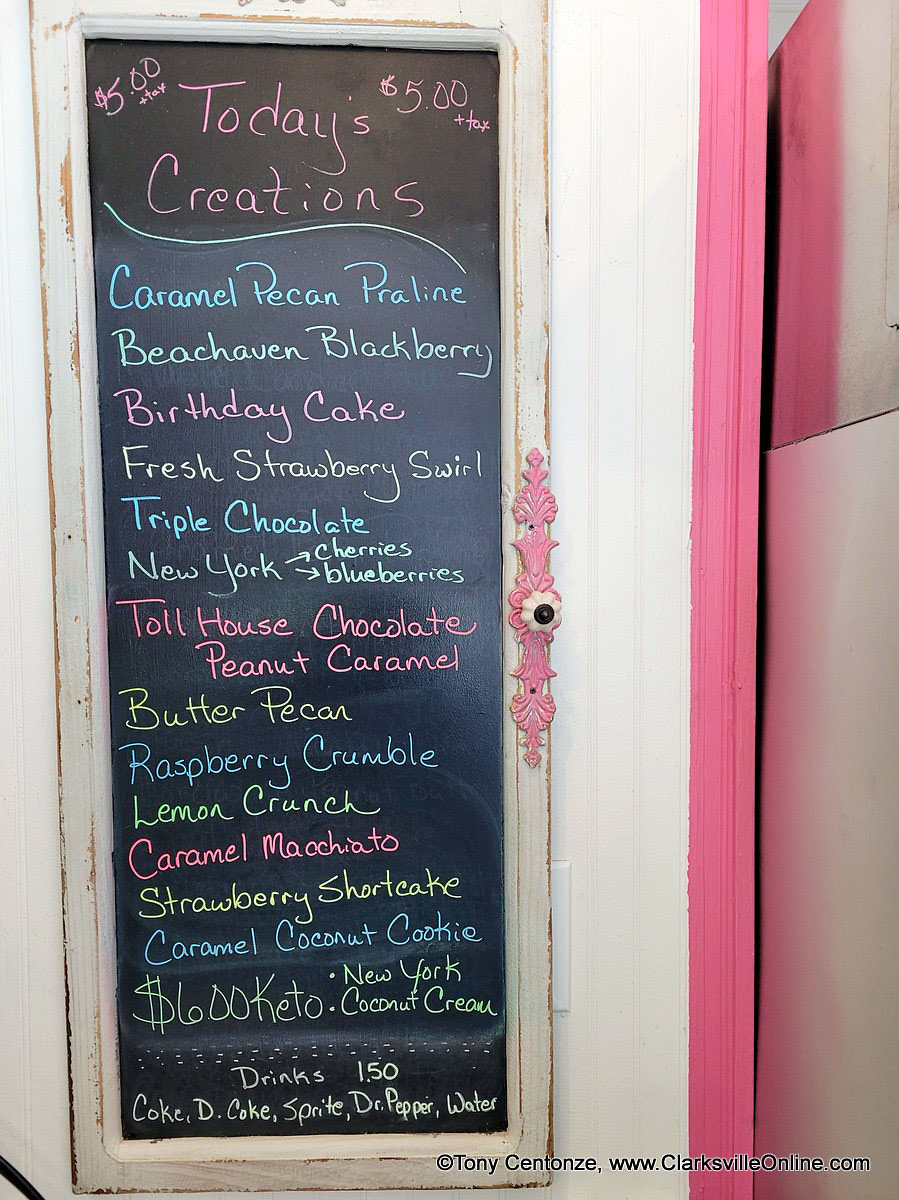 $5.00 +tax
Today's
$5.00 +tax
Creations
Caramel Pecan Praline
Beachaven Blackberry
Birthday Cake
Fresh Strawberry Swirl
Triple Chocolate
New York → cherries
→ blueberries
Toll House Chocolate
Peanut Caramel
Butter Pecan
Raspberry Crumble
Lemon Crunch
Caramel Macchiato
Strawberry Shortcake
Caramel Coconut Cookie
$6.00 Keto • New York
• Coconut Cream
Drinks 1.50
Coke, D. Coke, Sprite, Dr. Pepper, Water
©Tony Centonze, www.ClarksvilleOnline.com